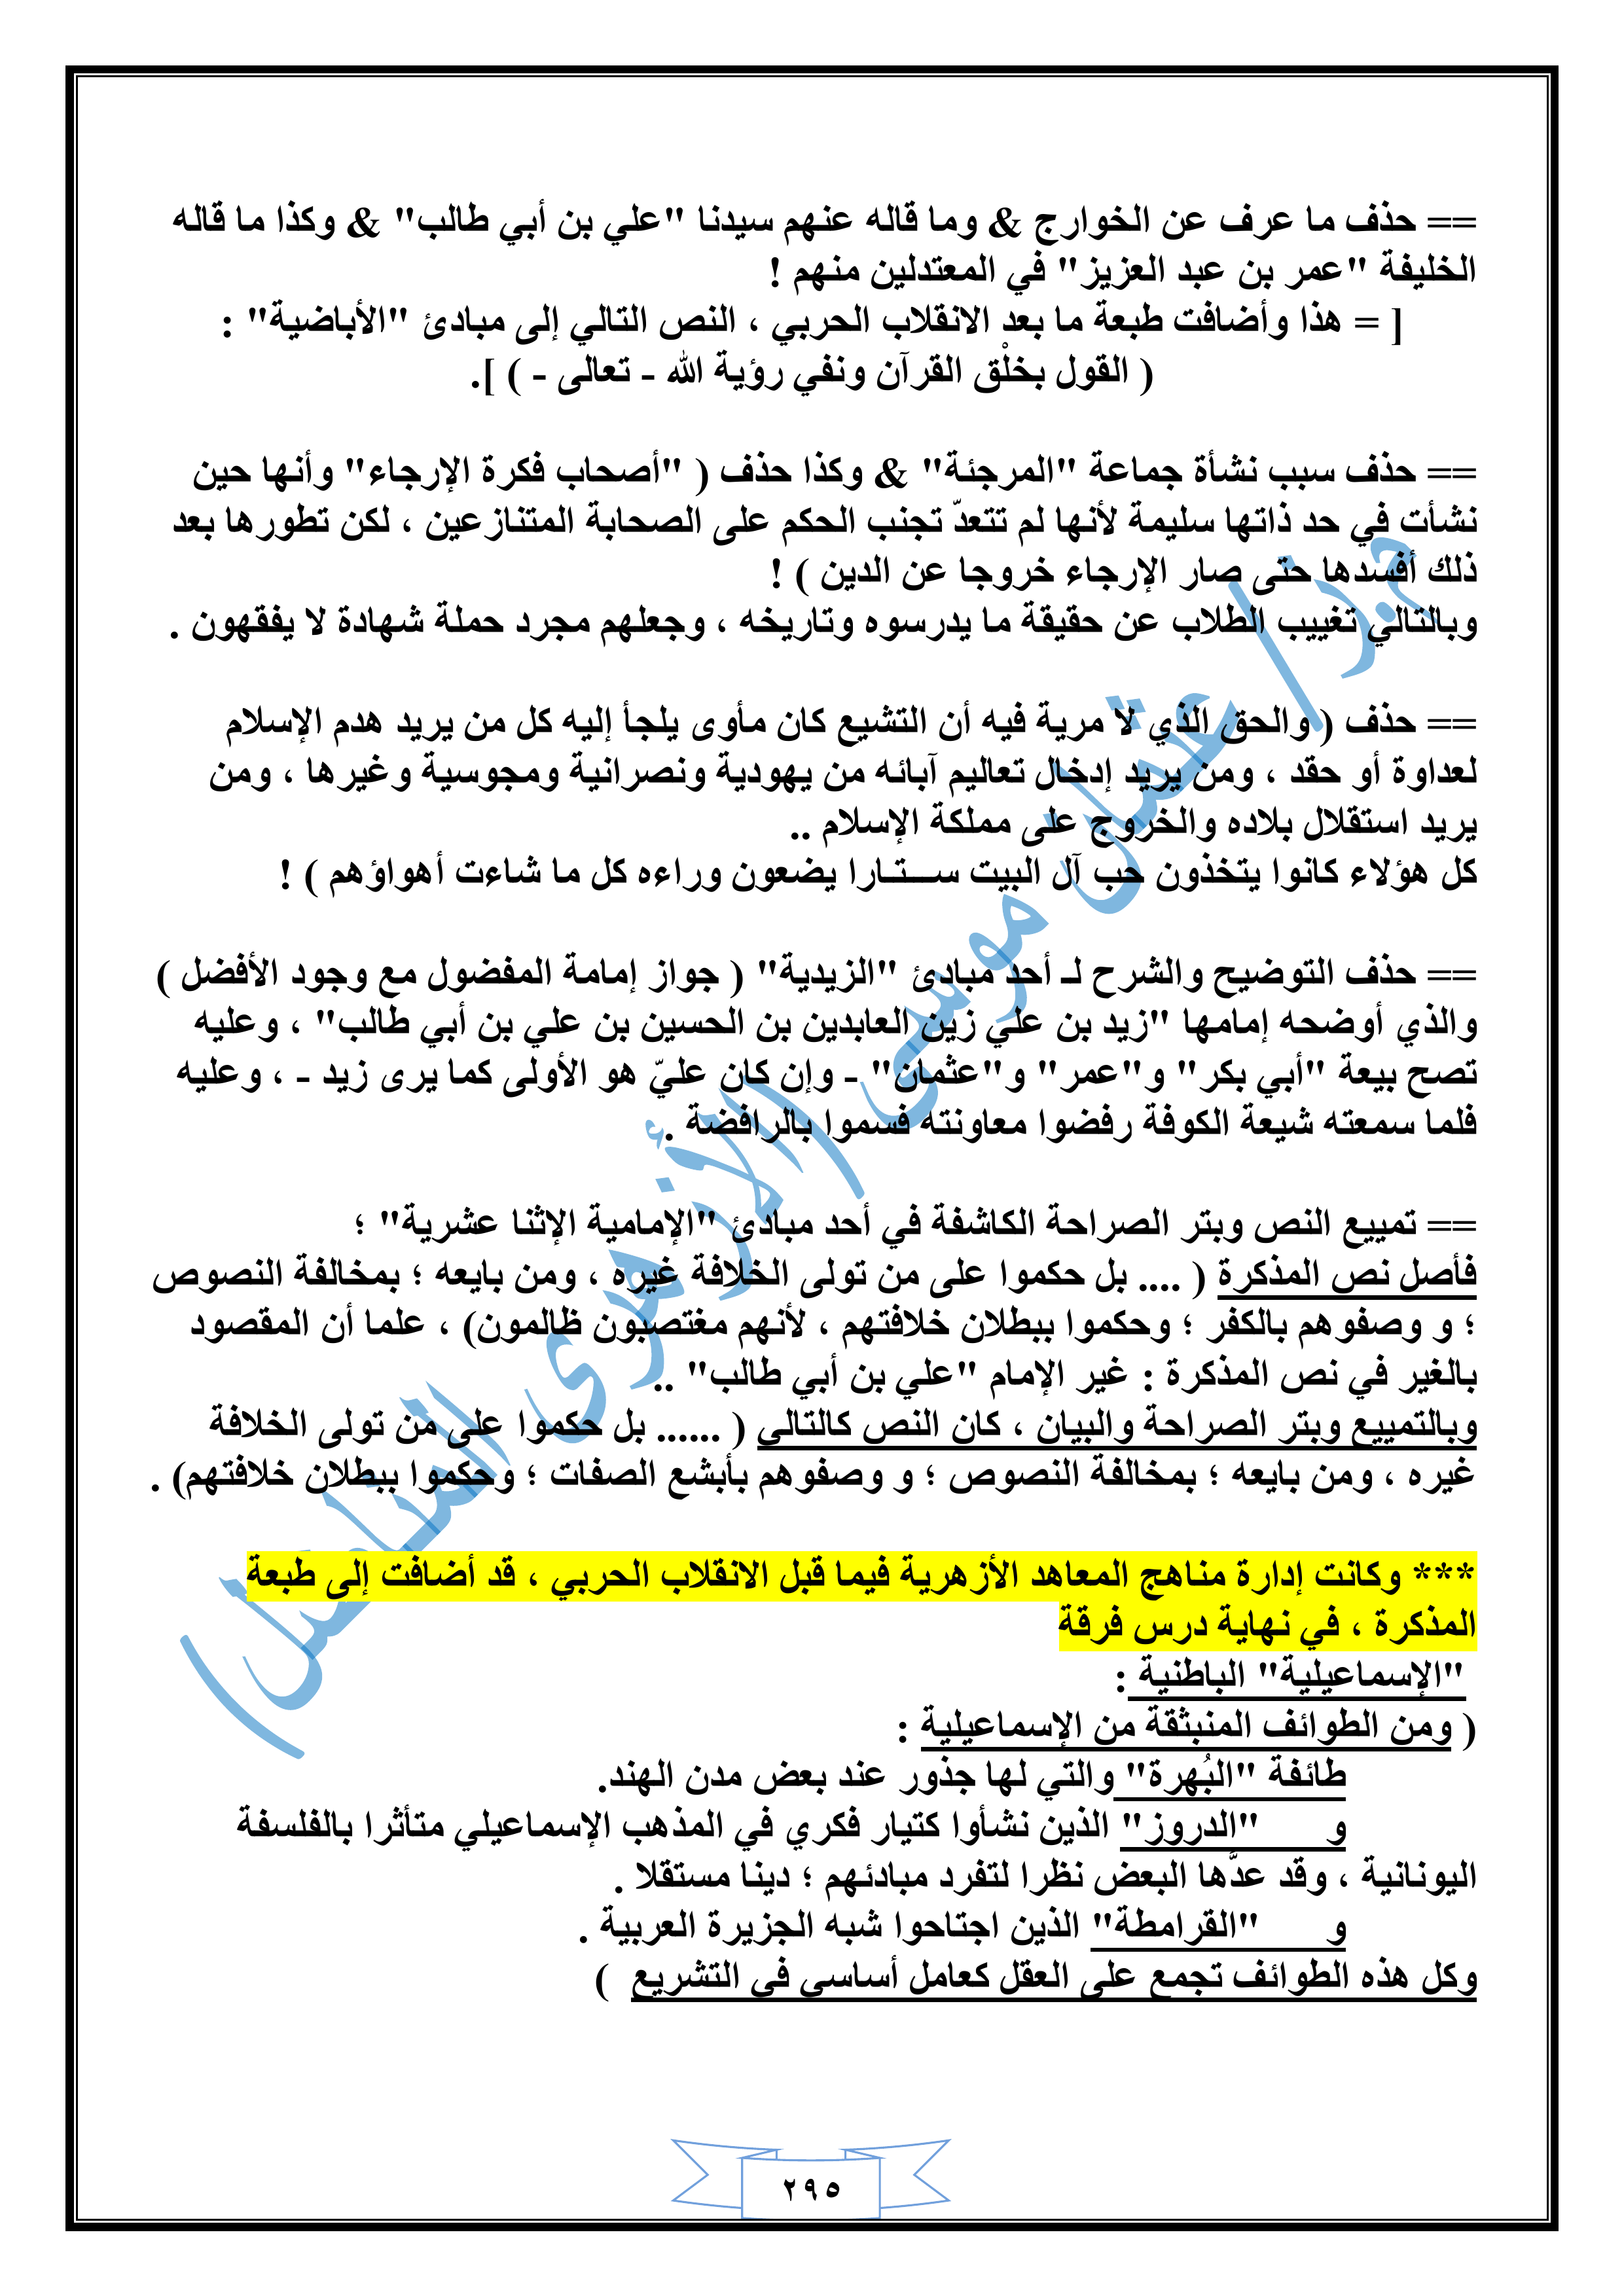 == حذف ما عرف عن الخوارج & وما قاله عنهم سيدنا "علي بن أبي طالب" & وكذا ما قاله
الخليفة "عمر بن عبد العزيز" في المعتدلين منهم !
[ = هذا وأضافت طبعة ما بعد الانقلاب الحربي ، النص التالي إلى مبادئ "الأباضية" :
( القول بخلْق القرآن ونفي رؤية الله - تعالى - ) ].
== حذف سبب نشأة جماعة "المرجئة" & وكذا حذف ( "أصحاب فكرة الإرجاء" وأنها حين
نشأت في حد ذاتها سليمة لأنها لم تتعدّ تجنب الحكم على الصحابة المتنازعين ، لكن تطورها بعد
ذلك أفسدها حتى صار الإرجاء خروجا عن الدين ) !
وبالتالي تغييب الطلاب عن حقيقة ما يدرسوه وتاريخه ، وجعلهم مجرد حملة شهادة لا يفقهون .
== حذف ( والحق الذي لا مرية فيه أن التشيع كان مأوى يلجأ إليه كل من يريد هدم الإسلام
لعداوة أو حقد ، ومن يريد إدخال تعاليم آبائه من يهودية ونصرانية ومجوسية وغيرها ، ومن
يريد استقلال بلاده والخروج على مملكة الإسلام ..
كل هؤلاء كانوا يتخذون حب آل البيت ســـتـارا يضعون وراءه كل ما شاءت أهواؤهم ) !
== حذف التوضيح والشرح لـ أحد مبادئ "الزيدية" ( جواز إمامة المفضول مع وجود الأفضل )
والذي أوضحه إمامها "زيد بن علي زين العابدين بن الحسين بن علي بن أبي طالب" ، وعليه
تصح بيعة "أبي بكر" و"عمر" و"عثمان" - وإن كان عليّ هو الأولى كما يرى زيد - ، وعليه
فلما سمعته شيعة الكوفة رفضوا معاونته فسموا بالرافضة .
== تمييع النص وبتر الصراحة الكاشفة في أحد مبادئ "الإمامية الإثنا عشرية" ؛
فأصل نص المذكرة ( .... بل حكموا على من تولى الخلافة غيره ، ومن بايعه ؛ بمخالفة النصوص
؛ و وصفوهم بالكفر ؛ وحكموا ببطلان خلافتهم ، لأنهم مغتصبون ظالمون) ، علما أن المقصود
بالغير في نص المذكرة : غير الإمام "علي بن أبي طالب" ..
وبالتمييع وبتر الصراحة والبيان ، كان النص كالتالي ( ...... بل حكموا على من تولى الخلافة
غيره ، ومن بايعه ؛ بمخالفة النصوص ؛ و وصفوهم بأبشع الصفات ؛ وحكموا ببطلان خلافتهم) .
*** وكانت إدارة مناهج المعاهد الأزهرية فيما قبل الانقلاب الحربي ، قد أضافت إلى طبعة
المذكرة ، في نهاية درس فرقة
"الإسماعيلية" الباطنية :
( ومن الطوائف المنبثقة من الإسماعيلية :
طائفة "البُهرة" والتي لها جذور عند بعض مدن الهند.
و "الدروز" الذين نشأوا كتيار فكري في المذهب الإسماعيلي متأثرا بالفلسفة
اليونانية ، وقد عدَّها البعض نظرا لتفرد مبادئهم ؛ دينا مستقلا .
و "القرامطة" الذين اجتاحوا شبه الجزيرة العربية .
وكل هذه الطوائف تجمع على العقل كعامل أساسي في التشريع )
٢٩٥